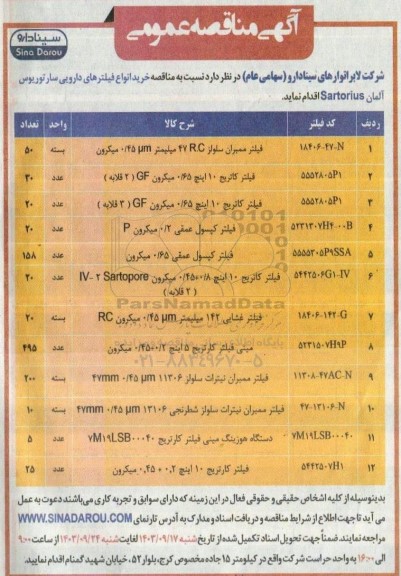 آگهی مناقصه عمومی
سینادارو
Sina Darou
شرکت لابراتوارهای سینادارو (سهامی عام) در نظر دارد نسبت به مناقصه خرید انواع فیلترهای دارویی سارتوریوس
آلمان Sartorius اقدام نماید.
ردیف کد فیلتر شرح کالا واحد تعداد
۱ ۱۸۴۰۶-۴۷-N فیلتر ممبران سلولز R.C ۴۷ میلیمتر ۰/۴۵ µm میکرون بسته ۵۰
۲ ۵۵۵۲۸۰۵P۱ فیلتر کاتریج ۱۰ اینچ ۰/۶۵ میکرون GF ( ۲ قلابه ) عدد ۳۰
۳ ۵۵۵۲۸۰۵P۱ فیلتر کاتریج ۱۰ اینچ ۰/۶۵ میکرون GF ( ۳ قلابه ) عدد ۲۰
۴ ۵۲۳۱۳۰۷H۴-۰۰B فیلتر کپسول عمقی ۰/۲ میکرون P عدد ۲۰
۵ ۵۵۵۵۳۰۵P۹SSA فیلتر کپسول عمقی ۰/۶۵ میکرون عدد ۱۵۸
۶ ۵۴۴۲۵۰۶G۱-IV فیلتر کاتریج ۱۰ اینچ ۰/۴۵+۰/۸ میکرون IV- ۲ Sartopore عدد ۲۰
( ۲ قلابه )
۷ ۱۸۴۰۶-۱۴۲-G فیلتر غشایی ۱۴۲ میلیمتر ۰/۴۵ µm میکرون RC بسته ۲۰
۸ ۵۲۳۱۵۰۷H۹P مینی فیلتر کارتریج ۵ اینچ ۰/۴۵+۰/۲ میکرون عدد ۴۹۵
۹ ۱۱۳۰۸-۴۷AC-N فیلتر ممبران نیترات سلولز ۱۱۳۰۶ ۴۷mm ۰/۴۵ µm بسته ۲۰۰
۱۰ ۴۷-۱۳۱۰۶-N فیلتر ممبران نیترات سلولز شطرنجی ۱۳۱۰۶ ۴۷mm ۰/۴۵ µm بسته ۱۰
۱۱ ۷M۱۹LSB۰۰۰۴۰ دستگاه هوزینگ مینی فیلتر کارتریج ۷M۱۹LSB۰۰۰۴۰ عدد ۵
۱۲ ۵۴۴۲۵۰۷H۱ فیلتر کارتریج ۱۰ اینچ ۰٫۲ + ۰٫۴۵ میکرون عدد ۲۵
ParsNamadData
۰۲۱-۸۸۳۴۹۶۷۰-۵
بدینوسیله از کلیه اشخاص حقیقی و حقوقی فعال در این زمینه که دارای سوابق و تجربه کاری می‌باشند دعوت به عمل
می آید تا جهت اطلاع از شرایط مناقصه و دریافت اسناد و مدارک به آدرس تارنمای WWW.SINADAROU.COM
مراجعه نمایند. ضمناً جهت تحویل اسناد تکمیل شده از تاریخ شنبه ۱۴۰۳/۰۹/۱۷ لغایت شنبه ۱۴۰۳/۰۹/۲۴ از ساعت ۹:۰۰
الی ۱۶:۰۰ به واحد حراست شرکت واقع در کیلومتر ۱۵ جاده مخصوص کرج، بلوار ۵۲، خیابان شهید گمنام اقدام نمایید.